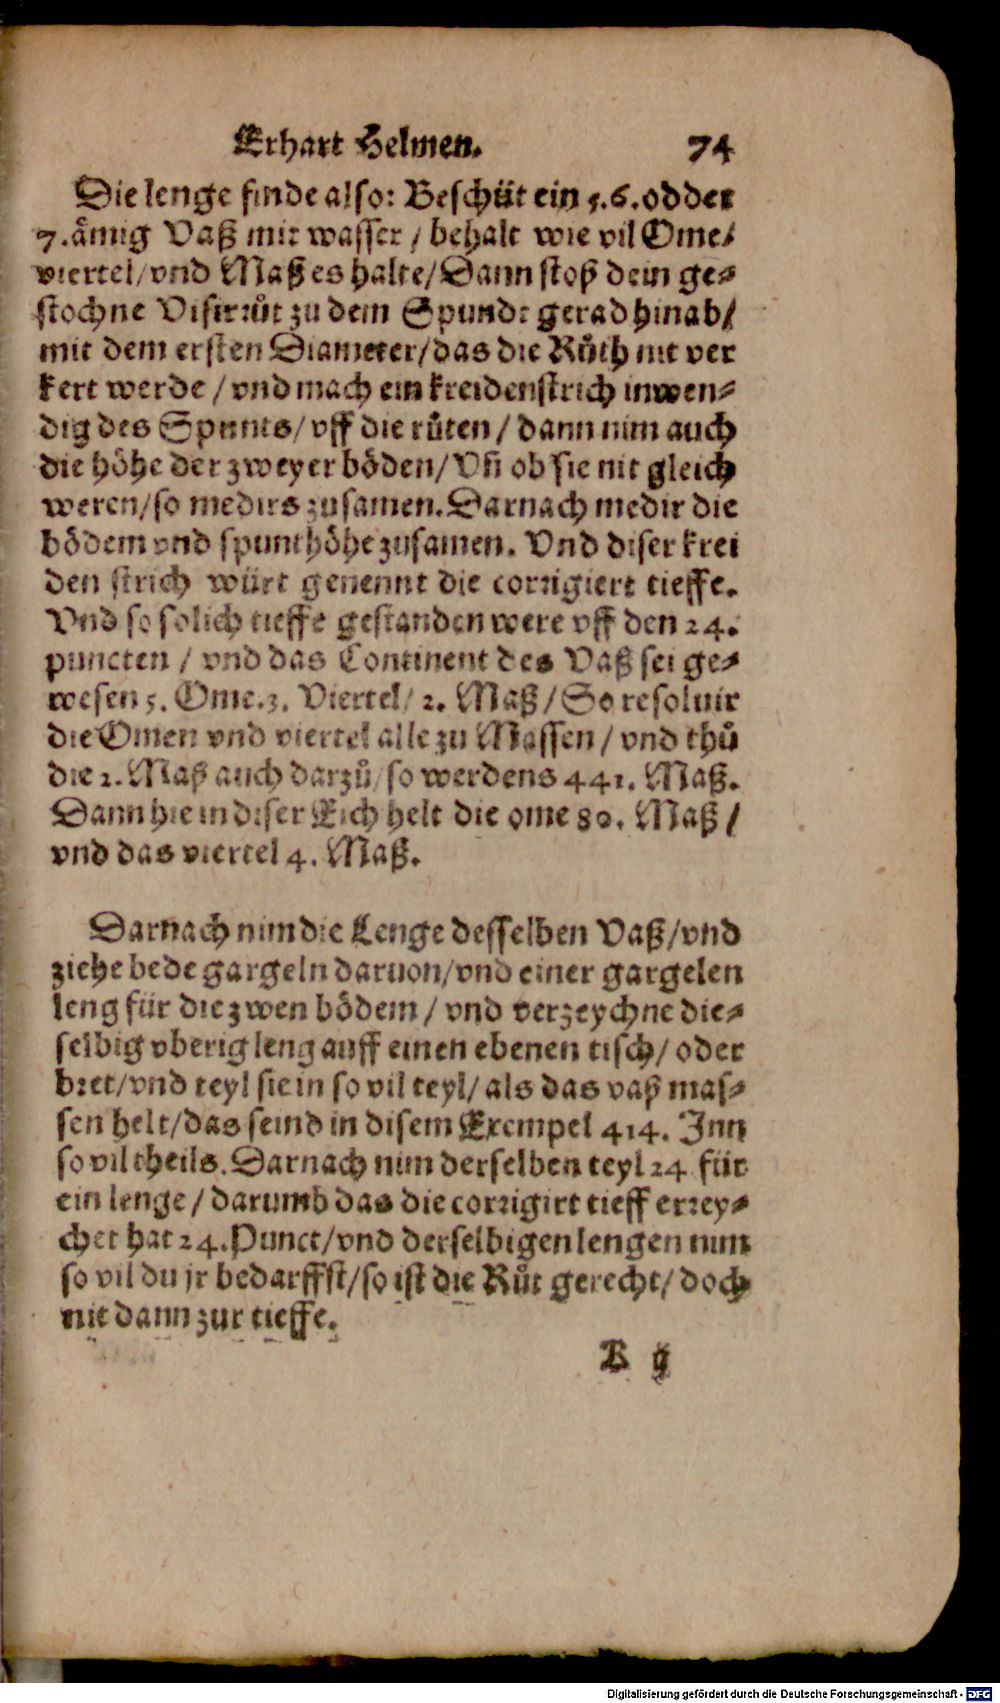 Erhart Helmen. 74
Die lenge finde also: Beschüt ein 5.6.odder
7.ämig Vaß mit wasser / behalt wie vil Ome/
viertel/vnd Maß es halte/Dann stoß dein ge-
stochne Visirrůt zu dem Spundt gerad hinab/
mit dem ersten Diameter/das die Růth nit ver
kert werde / vnd mach ein kreidenstrich inwen-
dig des Spunts/vff die růten / dann nim auch
die höhe der zweyer böden/Vñ ob sie nit gleich
weren/so medirs zusamen. Darnach medir die
bödem vnd spunthöhe zusamen. Vnd diser krei
den strich würt genennt die corrigiert tieffe.
Vnd so solich tieffe gestanden were vff den 24.
puncten / vnd das Continent des Vaß sei ge-
wesen 5. Ome.3. Viertel/ 2. Maß / So resoluir
die Omen vnd viertel alle zu Massen / vnd thů
die 2. Maß auch darzů/so werdens 441. Maß.
Dann hie in diser Eich helt die ome 80. Maß /
vnd das viertel 4. Maß.
Darnach nim die Lenge desselben Vaß/vnd
ziehe bede gargeln daruon/vnd einer gargelen
leng für die zwen bödem / vnd verzeychne die-
selbig vberig leng auff einen ebenen tisch/ oder
bret/vnd teyl sie in so vil teyl/ als das vaß mas-
sen helt/das seind in disem Exempel 414. Inn
so vil theils. Darnach nim derselben teyl 24 für
ein lenge / darumb das die corrigirt tieff errey-
chet hat 24.Punct/vnd derselbigen lengen nim
so vil du jr bedarffst/so ist die Růt gerecht/ doch
nit dann zur tieffe.
K
Digitalisierung gefördert durch die Deutsche Forschungsgemeinschaft - DFG